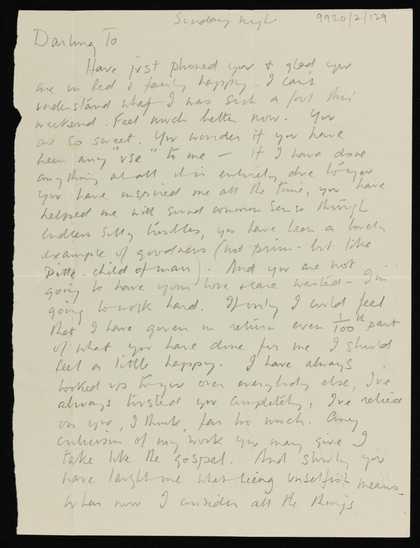 Sunday night
9920/2/129
Darling To
Have just phoned you & glad you
are in bed & fairly happy. I can't
understand what I was such a fool this
weekend. Feel much better now. You
are so sweet. You wonder if you have
been any "use" to me — if I have done
anything at all it is entirely due to you
you have inspired me all the time, you have
helped me with sound common sense through
endless silly troubles, you have been a lovely
example of goodness (not prim - but like
child of man). And you are not
going to have your love & care wasted - I'm
going to work hard. If only I could feel
that I have given in return even 1/100th part
of what you have done for me I should
feel a little happy. I have always
looked up to you over everybody else, I've
always trusted you completely, I've relied
on you, I think, far too much. Any
criticism of my work you may give I
take like the gospel. And surely you
have taught me what being unselfish means.
When now I consider all the things